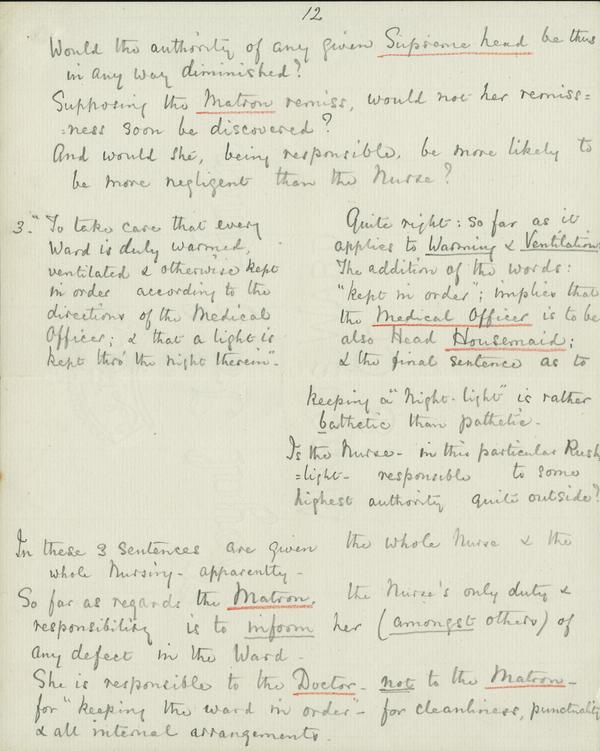 12
Would the authority of any given Supreme head be thus
in any way diminished?
Supposing the Matron remiss, would not her remiss=
=ness soon be discovered?
And would she, being responsible, be more likely to
be more negligent than the Nurse?
3. "To take care that every
Ward is duly warmed,
ventilated & otherwise kept
in order according to the
directions of the Medical
Officer; & that a light is
kept thro' the night therein".
Quite right: so far as it
applies to Warming & Ventilation:
The addition of the words:
"kept in order"; implies that
the Medical Officer is to be
also Head Housemaid;
& the final sentence as to
keeping a "Night-light" is rather
bathetic than pathetic.
Is the Nurse - in this particular Rush
=light - responsible to some
highest authority quite outside?
In these 3 sentences are given the whole Nurse & the
whole Nursing - apparently -
So far as regards the Matron, the Nurse's only duty &
responsibility is to inform her (amongst others) of
any defect in the Ward.
She is responsible to the Doctor - not to the Matron -
for "keeping the ward in order" - for cleanliness, punctuality
& all internal arrangements.